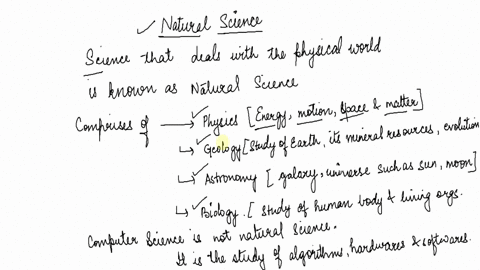 ✓ Natural Science
Science that deals with the physical world
is known as Natural Science
Comprises of → ✓ Physics [Energy, motion, space & matter]
↳ ✓ Geology [Study of Earth, its mineral resources, evolution
↳ ✓ Astronomy [galaxy, universe such as sun, moon]
↳ ✓ Biology. [study of human body & living orgs.
Computer Science is not natural science.
It is the study of algorithms, hardwares & softwares.